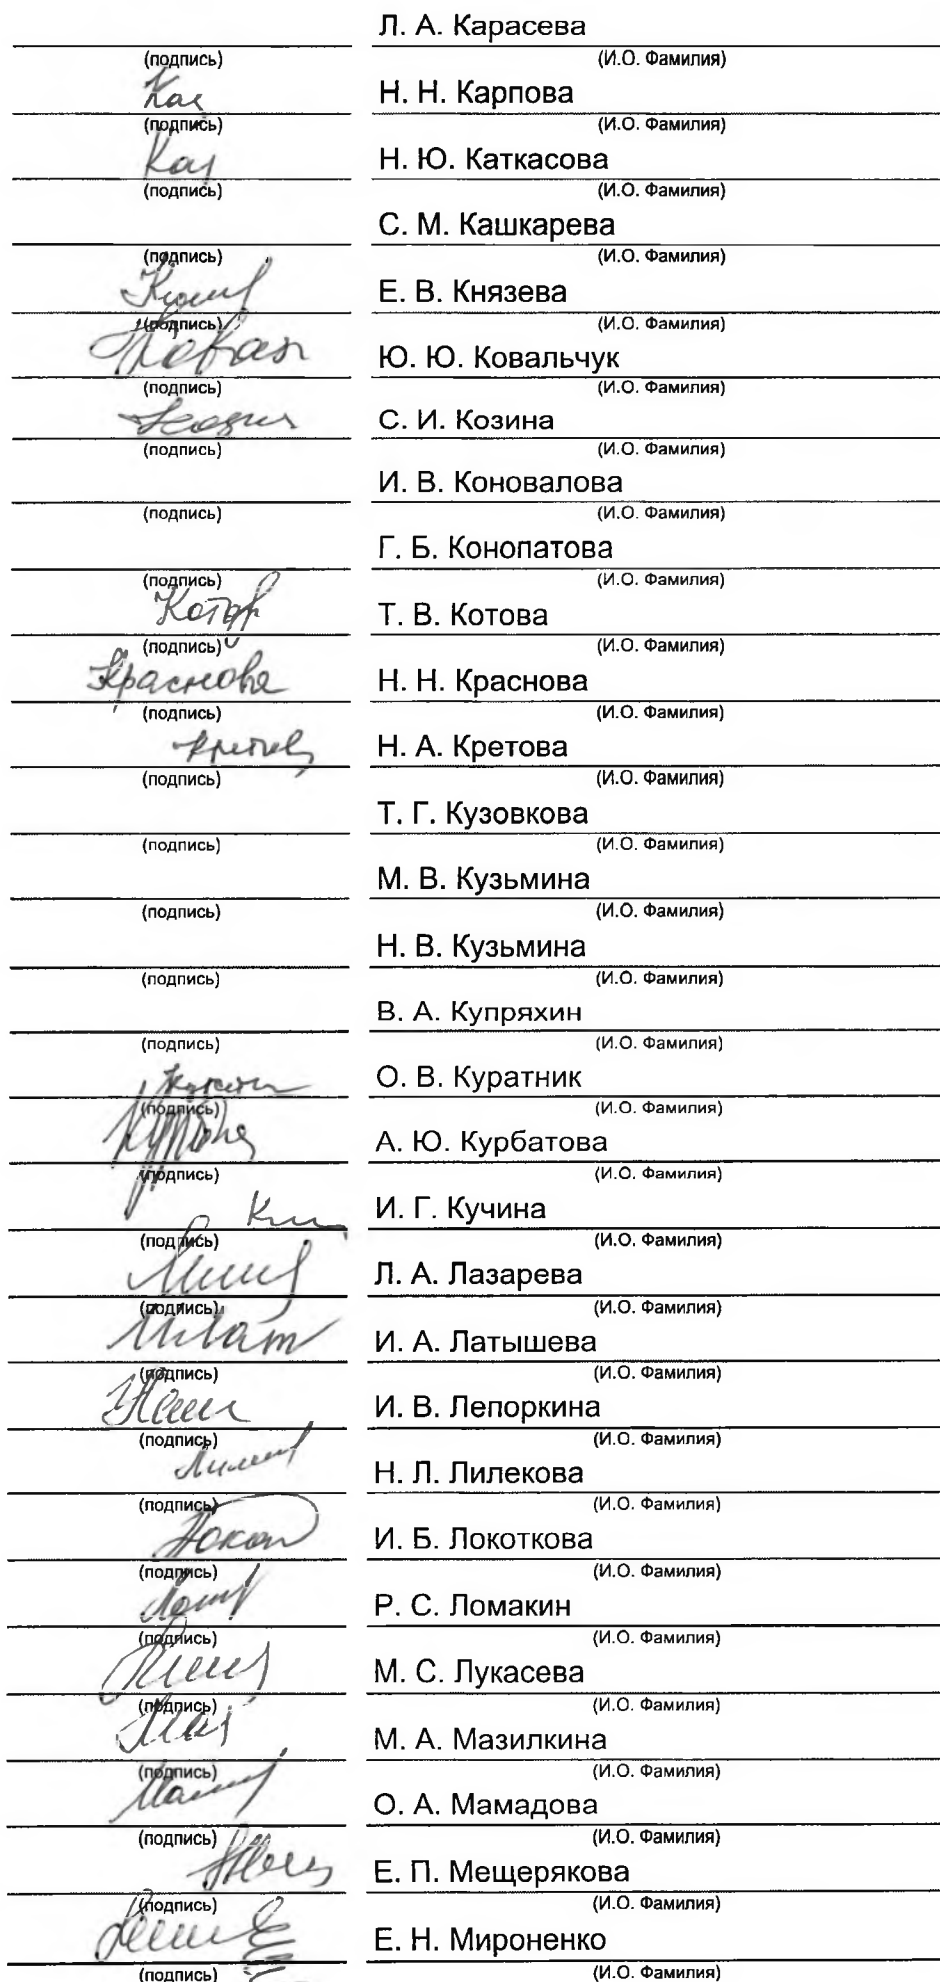 Л. А. Карасева
(подпись) (И.О. Фамилия)
Н. Н. Карпова
(подпись) (И.О. Фамилия)
Н. Ю. Каткасова
(подпись) (И.О. Фамилия)
С. М. Кашкарева
(подпись) (И.О. Фамилия)
Е. В. Князева
(подпись) (И.О. Фамилия)
Ю. Ю. Ковальчук
(подпись) (И.О. Фамилия)
С. И. Козина
(подпись) (И.О. Фамилия)
И. В. Коновалова
(подпись) (И.О. Фамилия)
Г. Б. Конопатова
(подпись) (И.О. Фамилия)
Т. В. Котова
(подпись) (И.О. Фамилия)
Краснова Н. Н. Краснова
(подпись) (И.О. Фамилия)
Н. А. Кретова
(подпись) (И.О. Фамилия)
Т. Г. Кузовкова
(подпись) (И.О. Фамилия)
М. В. Кузьмина
(подпись) (И.О. Фамилия)
Н. В. Кузьмина
(подпись) (И.О. Фамилия)
В. А. Купряхин
(подпись) (И.О. Фамилия)
О. В. Куратник
(подпись) (И.О. Фамилия)
А. Ю. Курбатова
(подпись) (И.О. Фамилия)
И. Г. Кучина
(подпись) (И.О. Фамилия)
Л. А. Лазарева
(подпись) (И.О. Фамилия)
И. А. Латышева
(подпись) (И.О. Фамилия)
И. В. Лепоркина
(подпись) (И.О. Фамилия)
Н. Л. Лилекова
(подпись) (И.О. Фамилия)
И. Б. Локоткова
(подпись) (И.О. Фамилия)
Р. С. Ломакин
(подпись) (И.О. Фамилия)
М. С. Лукасева
(подпись) (И.О. Фамилия)
М. А. Мазилкина
(подпись) (И.О. Фамилия)
О. А. Мамадова
(подпись) (И.О. Фамилия)
Е. П. Мещерякова
(подпись) (И.О. Фамилия)
Е. Н. Мироненко
(подпись) (И.О. Фамилия)